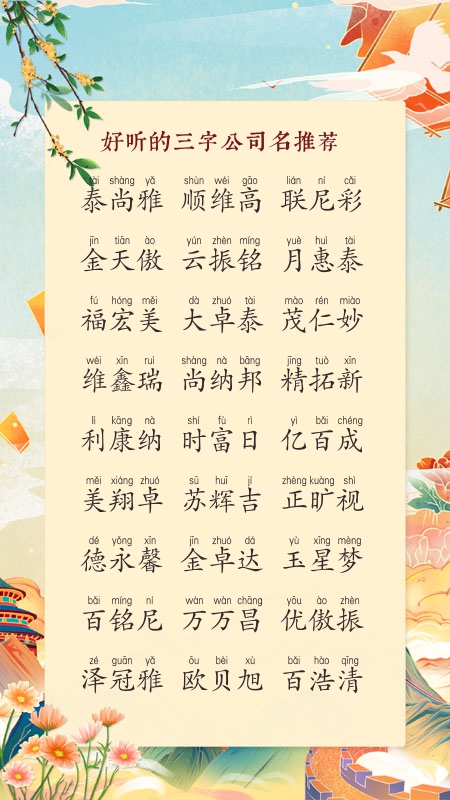 好听的三字公司名推荐
tài shàng yǎ shùn wéi gāo lián ní cǎi
泰尚雅 顺维高 联尼彩
jīn tiān ào yún zhèn míng yuè huì tài
金天傲 云振铭 月惠泰
fú hóng měi dà zhuó tài mào rén miào
福宏美 大卓泰 茂仁妙
wéi xīn ruì shàng nà bāng jīng tuò xīn
维鑫瑞 尚纳邦 精拓新
lì kāng nà shí fù rì yì bǎi chéng
利康纳 时富日 亿百成
měi xiáng zhuó sū huī jí zhèng kuàng shì
美翔卓 苏辉吉 正旷视
dé yǒng xīn jīn zhuó dá yù xīng mèng
德永馨 金卓达 玉星梦
bǎi míng ní wàn wàn chāng yōu ào zhèn
百铭尼 万万昌 优傲振
zé guān yǎ ōu bèi xù bǎi hào qīng
泽冠雅 欧贝旭 百浩清